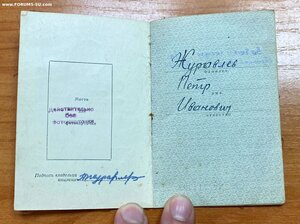 © www.FORUMS-SU.com
Место
ДЕЙСТВИТЕЛЬНО
БЕЗ
ФОТОКАРТОЧКИ
Подпись владельца
книжки
Журавлев
Журавлев
фамилия
Петр
имя
Иванович
отчество